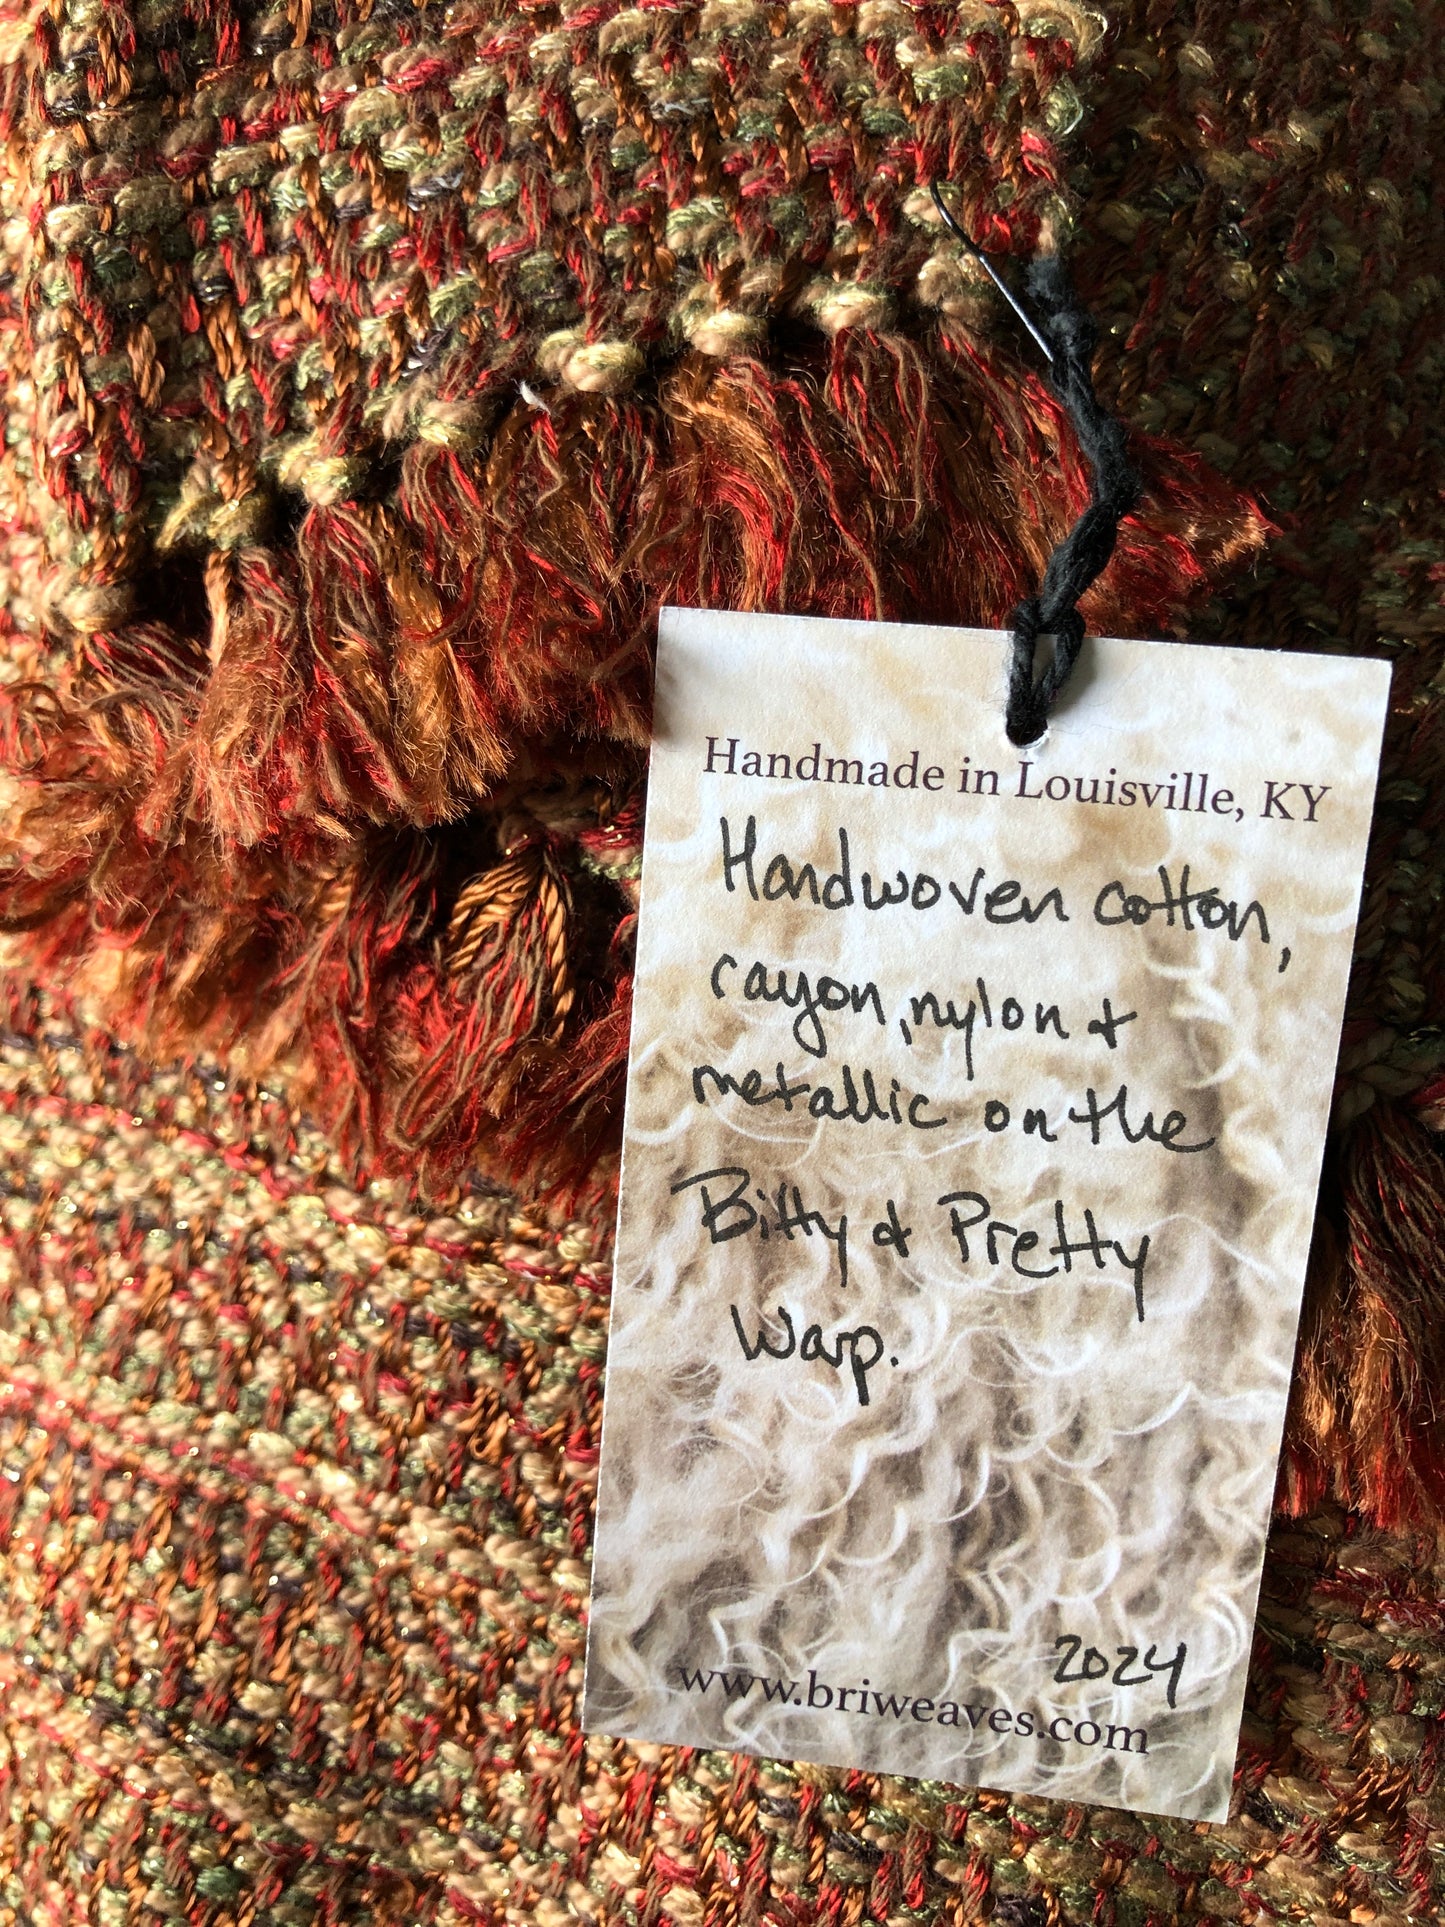 Handmade in Louisville, KY
Handwoven cotton,
rayon, nylon &
metallic on the
Bitty & Pretty
Warp.
2024
www.briweaves.com